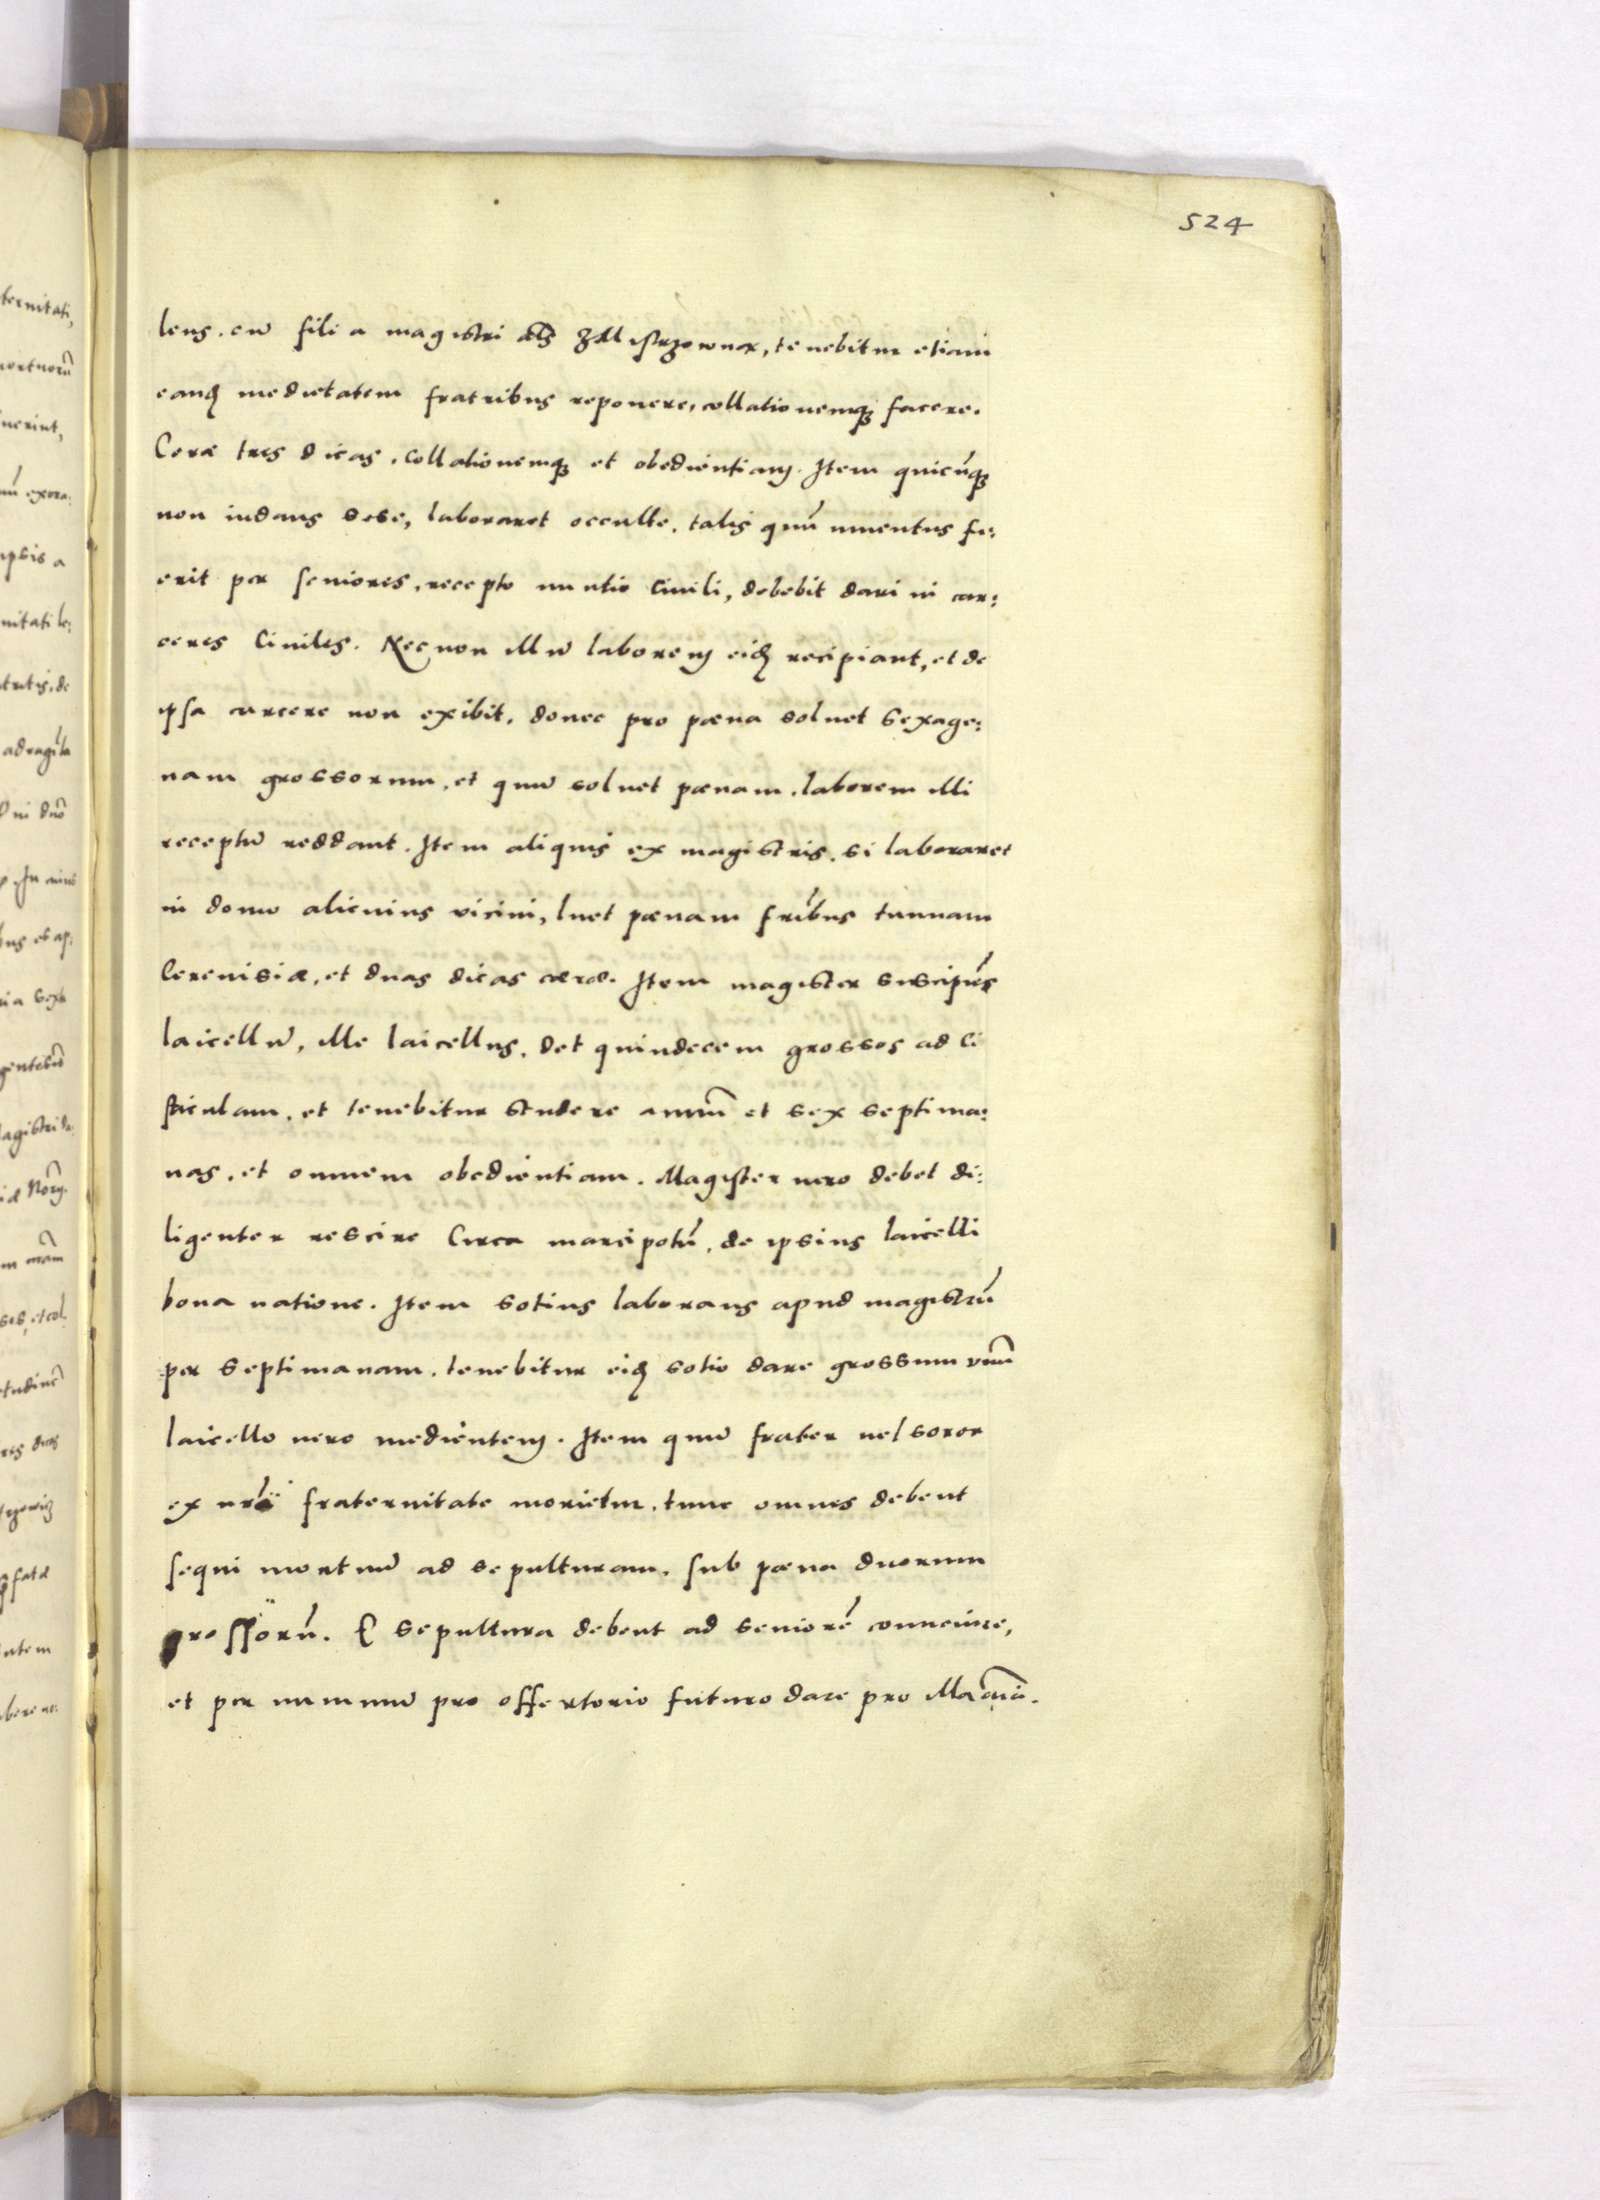 524
lens. cũ filia magistri als z Mistrzowną, tenebitur etiam
eandẽ medietatem fratribus reponere, collationemq̃ facere.
Ceræ tres dicas, collationemq̃ et obedientiam. Item quicũq̃
non iudans sese, laboraret occulte, talis quũ inuentus fu:
erit per seniores, recepto nuntio Ciuili, debebit dari in car:
ceres Ciuiles. Necnon illũ laborem eidẽ recipiant, et de
ipsa carcere non exibit, donec pro pœna soluet sexage:
nam grossorum, et quũ soluet pœnam, laborem illi
receptũ reddant. Item aliquis ex magistris, si laboraret
in domo alicuius vicini, luet pœnam fribus tunnam
Cereuisiæ, et duas dicas cæræ. Item magister suscipiẽs
laicellũ, ille laicellus, det quindecem grossos ad Ci
sticulam, et tenebitur studere annũ et sex septima:
nas, et omnem obedientiam. Magister uero debet di:
ligenter rescire Circa marcipotũ, de ipsius laicelli
bona natione. Item sotius laborans apud magistrũ
per septimanam, tenebitur eidẽ sotio dare grossum vnũ
laicello uero medientem. Item quũ frater uel soror
ex nrã fraternitate morietur, tunc omnes debent
sequi mortuũ ad sepulturam, sub pœna duorum
grossorũ. E sepultura debent ad seniorẽ conuenire,
et per nummũ pro offertorio futuro dare pro illa aĩa.